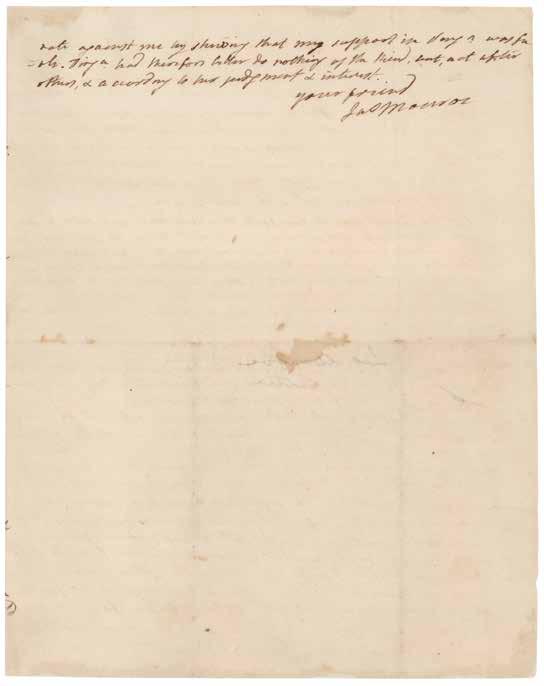 vote against me by shewing that my support in Virg a was fee
=ble. Virg a had therefore better do nothing of the kind, but, act after
others, & according to her judgment & interest.
your friend
Jas Monroe